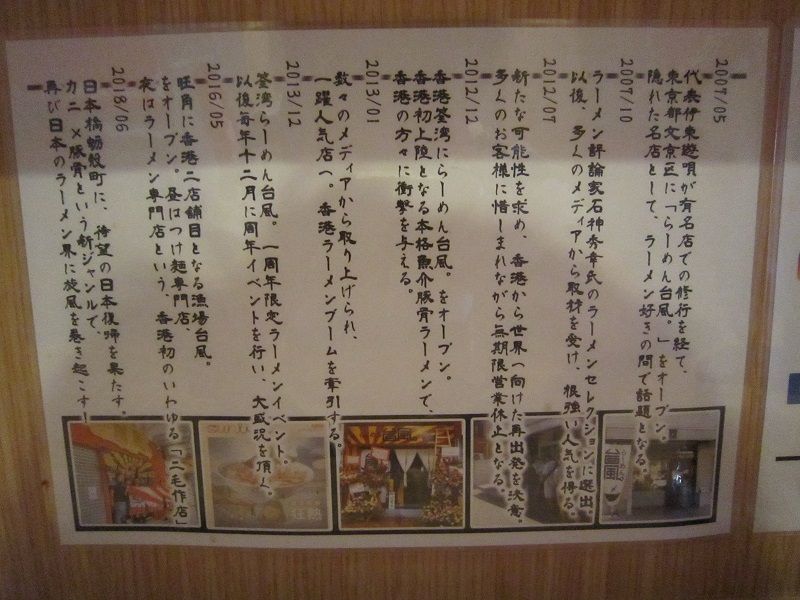 2007/05
代表伊東遊唄が有名店での修行を経て、
東京都文京区に「らーめん台風。」をオープン。
隠れた名店として、ラーメン好きの間で話題となる。
2007/10
ラーメン評論家石神秀幸氏のラーメンセレクションに選出。
以後、多くのメディアから取材を受け、根強い人気を得る。
2012/07
新たな可能性を求め、香港から世界へ向けた再出発を決意。
多くのお客様に惜しまれながら無期限営業休止となる。
2012/12
香港荃湾にらーめん台風。をオープン。
香港初上陸となる本格魚介豚骨ラーメンで、
香港の方々に衝撃を与える。
2013/01
数々のメディアから取り上げられ、
一躍人気店へ。香港ラーメンブームを牽引する。
2013/12
荃湾らーめん台風。一周年限定ラーメンイベント。
以後毎年十二月に周年イベントを行い、大盛況を頂く。
2016/05
旺角に香港二店舗目となる漁場台風。
をオープン。昼はつけ麺専門店、
夜はラーメン専門店という、香港初のいわゆる「二毛作店」
2018/06
日本橋蛎殻町に、待望の日本復帰を果たす。
カニ×豚骨という新ジャンルで、
再び日本のラーメン界に旋風を巻き起こす！
台風
台風